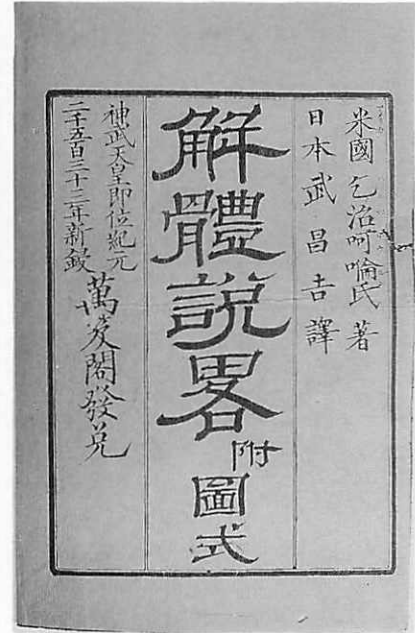 米國 乞治呵喩氏 著
日本 武昌吉 譯
解體説畧 附 圖式
神武天皇即位紀元
二千五百三十二年新鐫
萬笈閣發兌